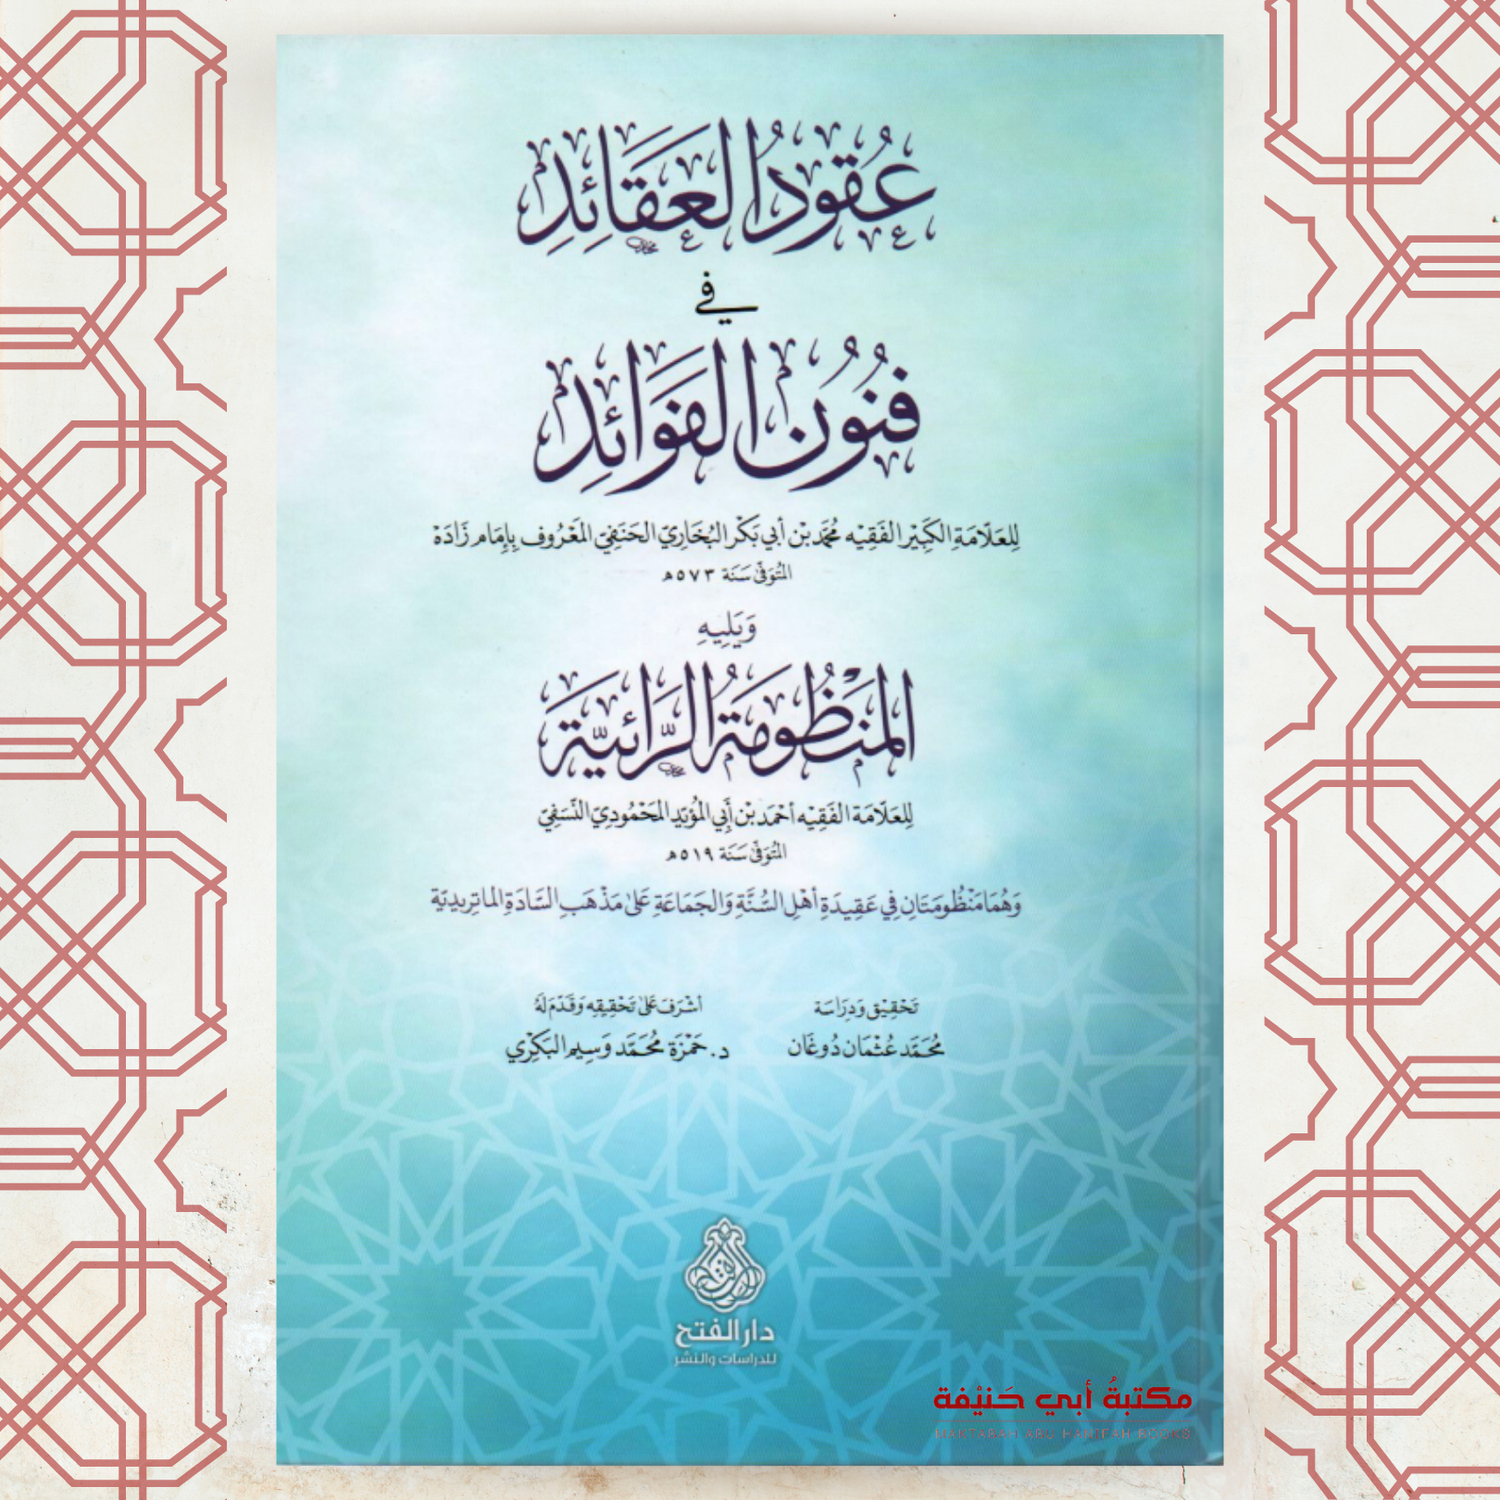 عُقُودُ العَقَائِدِ
في
فُنُونِ الفَوَائِدِ
لِلعَلّامَةِ الكَبِيْرِ الفَقِيْه مُحَمَّد بْن أبي بَكْر البُخَارِيّ الحَنَفِيّ المَعْرُوف بِإمَام زَادَهْ
المُتَوَفّى سَنَة ٥٧٣هـ
وَيَلِيهِ
المَنْظُومَةُ الرَّائِيَّة
لِلعَلّامَة الفَقِيْه أحْمَد بْن أَبِي المُؤَيّدِ المَحْمُودِيّ النَّسَفِيّ
المُتَوَفّى سَنَة ٥١٩هـ
وَهُمَا مَنْظُومَتَانِ فِي عَقِيدَةِ أهْلِ السُّنَّةِ وَالجَمَاعَةِ عَلىٰ مَذْهَبِ السَّادَةِ الماتريديّة
تَحْقِيْق وَدِرَاسَة
مُحَمَّد عُثْمَان دُوغَان
أشْرَفَ عَلىٰ تَحْقِيقِه وَقَدّمَ لَهُ
د. حَمْزَة مُحَمَّد وَسِيم البَكْرِي
دار الفتح
للدراسات والنشر
مكتبةُ أبي حَنيْفة
MAKTABAH ABU HANIFAH BOOKS